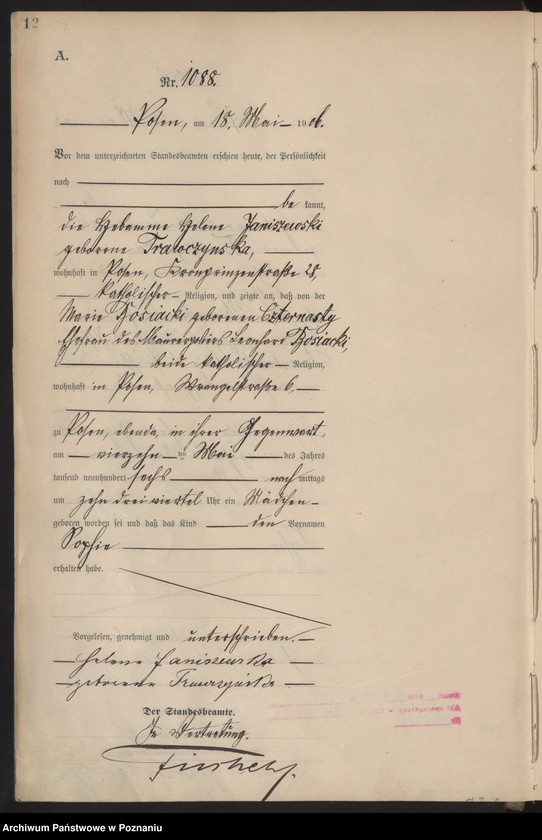 12
A.
Nr. 1088.
Posen, am 15. Mai 1906.
Vor dem unterzeichneten Standesbeamten erschien heute, der Persönlichkeit
nach
be kannt,
die Hebamme Helene Janiszewski
geborene Trawczynska,
wohnhaft in Posen, Kronprinzenstraße 28,
katholischer Religion, und zeigte an, daß von der
Marie Kosiacki geborenen Czternasty
Ehefrau des Maurerpoliers Leonhard Kosiacki,
beide katholischer Religion,
wohnhaft in Posen, Wrangelstraße 6,
zu Posen, ebenda, in ihrer Gegenwart,
am vierzehn ten Mai des Jahres
tausend neunhundert sechs nach mittags
um zehn dreiviertel Uhr ein Mädchen
geboren worden sei und daß das Kind den Vornamen
Sophie
erhalten habe.
Vorgelesen, genehmigt und unterschrieben.
Helene Janiszewska
geborene
Der Standesbeamte.
In Vertretung.
Archiwum Państwowe w Poznaniu